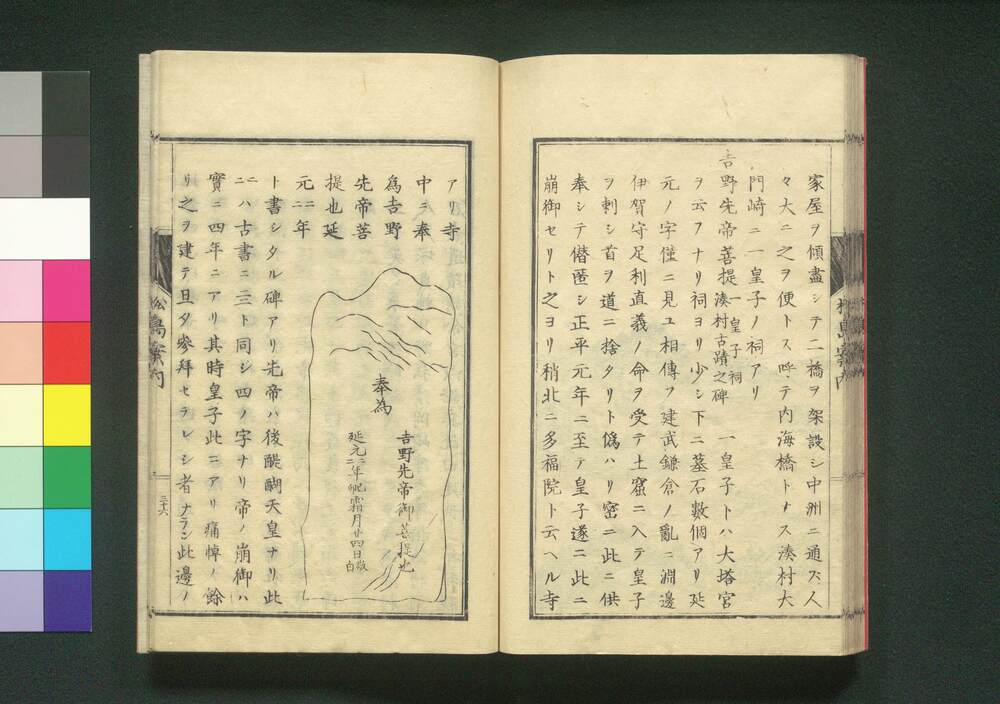 家屋ヲ傾盡シテ二橋ヲ架設シ中洲ニ通ズ人
々大ニ之ヲ便トス呼テ内海橋トナス湊村大
門崎ニ一皇子ノ祠アリ
吉野先帝菩提
一皇子祠
湊村古蹟之碑
一皇子トハ大塔宮
ヲ云フナリ祠ヨリ少シ下ニ墓石數個アリ延
元ノ字僅ニ見ユ相傳フ建武鎌倉ノ亂ニ淵邊
伊賀守足利直義ノ命ヲ受テ土窟ニ入テ皇子
ヲ刺シ首ヲ道ニ捨タリト僞ハリ密ニ此ニ供
奉シテ僭匿シ正平元年ニ至テ皇子遂ニ此ニ
崩御セリト之ヨリ稍北ニ多福院ト云ヘル寺
アリ寺
中ニ奉
為吉野
先帝菩
提也延
元二年
奉為
吉野先帝御菩提也
延元二二年
霜月廿四日敬白
ト書シタル碑アリ先帝ハ後醍醐天皇ナリ此
二二ハ古書ニ亖ト同シ四ノ字ナリ帝ノ崩御ハ
實ニ四年ニアリ其時皇子此ニアリ痛悼ノ餘
リ之ヲ建テ旦夕參拜セラレシ者ナラン此邊ノ
松島案内
三十六
松島案内